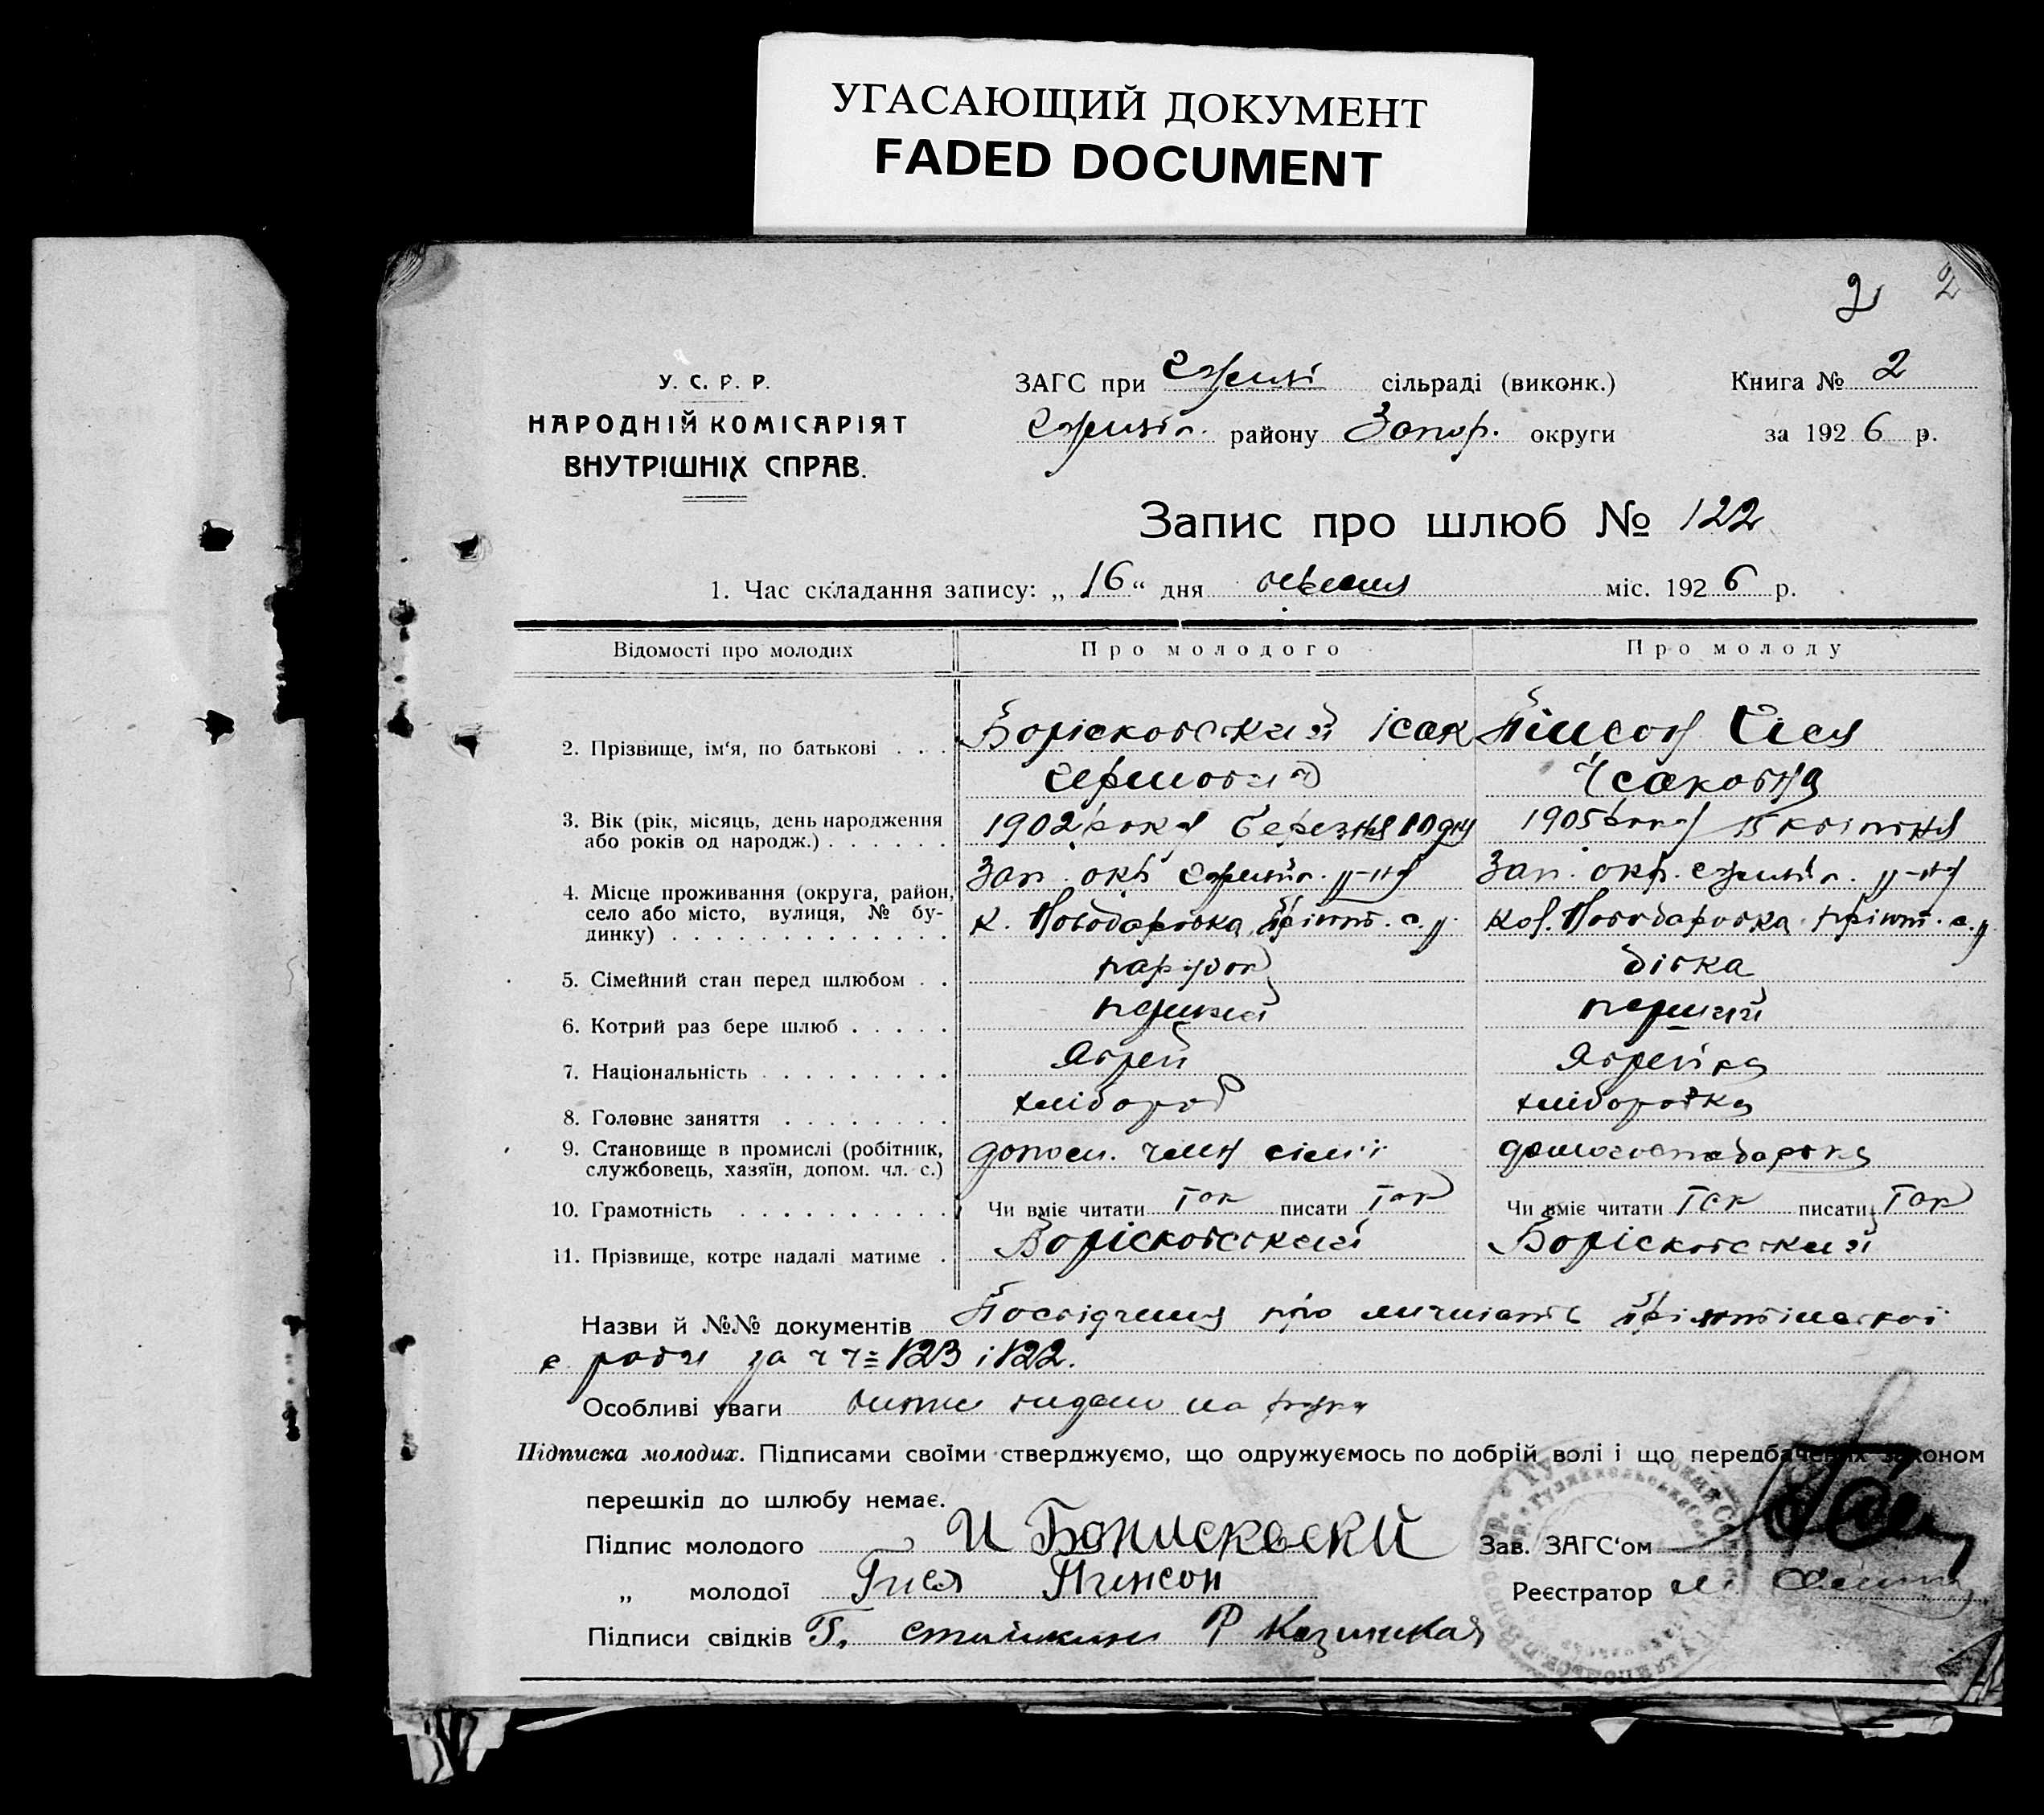 УГАСАЮЩИЙ ДОКУМЕНТ
FADED DOCUMENT
2 2
У. С. Р. Р.
НАРОДНІЙ КОМІСАРІЯТ
ВНУТРІШНІХ СПРАВ.
ЗАГС при сільраді (виконк.)
району Запор. округи
Книга № 2
за 1926 р.
Запис про шлюб № 122
1. Час складання запису: „16“ дня міс. 1926 р.
Відомості про молодих
Про молодого
Про молоду
2. Прізвище, ім‘я, по батькові . . .
Борісковський Ісак
Пінсон Гіся
Ісаковна
3. Вік (рік, місяць, день народження
або років од народж.) . . . . . .
1902 року березня 10 дня
1905 року 15 квітня
4. Місце проживання (округа, район,
село або місто, вулиця, № бу-
динку) . . . . . . . . . . . . .
Зап. окр. р-ну
к. Новодаровка, с.р.
Зап. окр. р-ну
кол. Новодаровка с.р.
5. Сімейний стан перед шлюбом . .
парубок
дівка
6. Котрий раз бере шлюб . . . . .
перший
перший
7. Національність . . . . . . . . .
Яврей
Яврейка
8. Головне заняття . . . . . . . .
хлібороб
хліборобка
9. Становище в промислі (робітник,
службовець, хазяїн, допом. чл. с.)
допом. член сім'ї
домогосподарка
10. Грамотність . . . . . . . . . .
Чи вміє читати так писати так
Чи вміє читати так писати так
11. Прізвище, котре надалі матиме .
Борісковський
Борісковский
Назви й №№ документів Посвідчення про
с. ради за чч 123 і 122.
Особливі уваги видано на руки
Підписка молодих. Підписами своїми стверджуємо, що одружуємось по добрій волі і що передбачених законом
перешкід до шлюбу немає.
Підпис молодого И Борисковски
Зав. ЗАГС‘ом
„ молодої Гися Пинсон
Реєстратор
Підписи свідків Г. Р